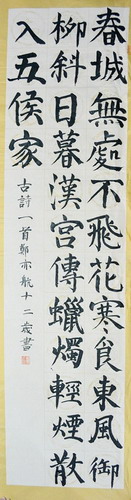 春城無處不飛花寒食東風御
柳斜日暮漢宮傳蠟燭輕煙散
入五侯家
古詩一首鄭亦航十二歲書